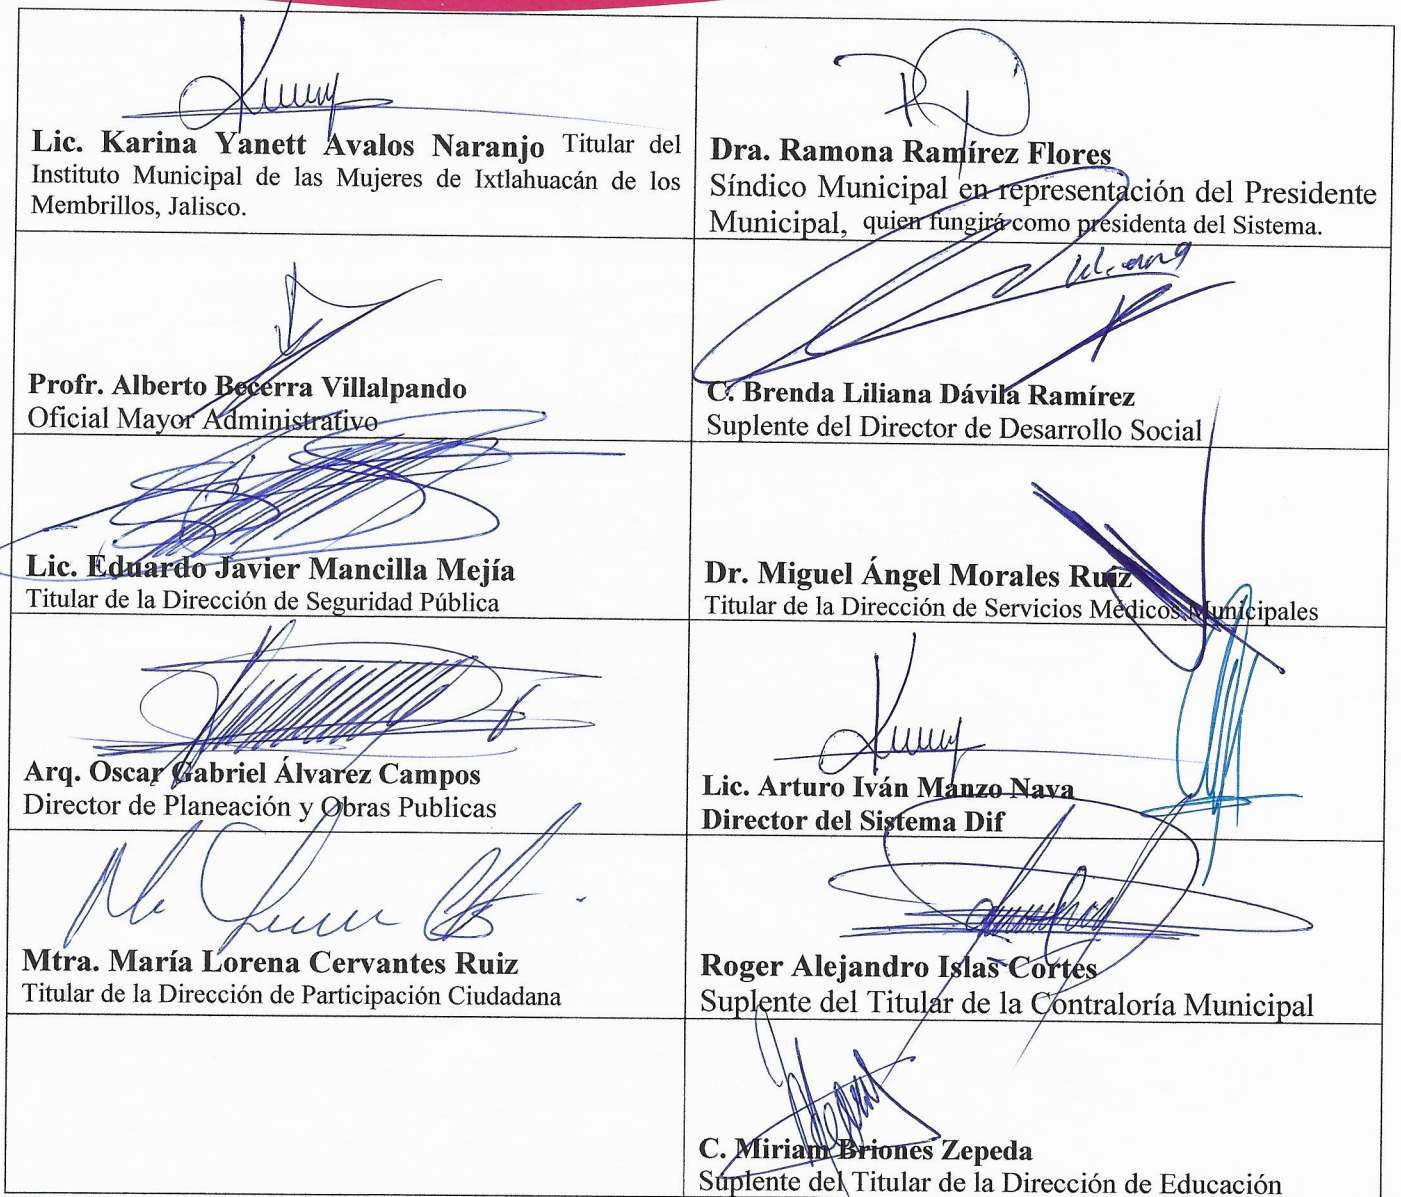 Lic. Karina Yanett Avalos Naranjo Titular del
Instituto Municipal de las Mujeres de Ixtlahuacán de los
Membrillos, Jalisco.
Dra. Ramona Ramírez Flores
Síndico Municipal en representación del Presidente
Municipal, quien fungirá como presidenta del Sistema.
Profr. Alberto Becerra Villalpando
Oficial Mayor Administrativo
C. Brenda Liliana Dávila Ramírez
Suplente del Director de Desarrollo Social
Lic. Eduardo Javier Mancilla Mejía
Titular de la Dirección de Seguridad Pública
Dr. Miguel Ángel Morales Ruiz
Titular de la Dirección de Servicios Médicos Municipales
Arq. Oscar Gabriel Álvarez Campos
Director de Planeación y Obras Publicas
Lic. Arturo Iván Manzo Nava
Director del Sistema Dif
Mtra. María Lorena Cervantes Ruiz
Titular de la Dirección de Participación Ciudadana
Roger Alejandro Islas Cortes
Suplente del Titular de la Contraloría Municipal
C. Miriam Briones Zepeda
Suplente del Titular de la Dirección de Educación